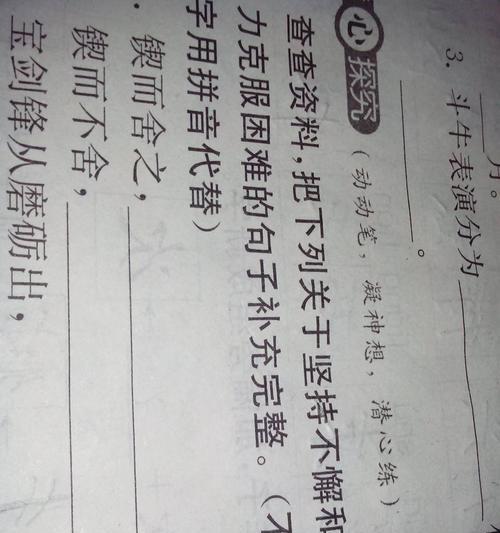 月。
3. 斗牛表演分为
。
心探究（动动笔，凝神想，潜心练）
查查资料，把下列关于坚持不懈和
力克服困难的句子补充完整。（不
字用拼音代替）
. 锲而舍之，
锲而不舍，
宝剑锋从磨砺出，